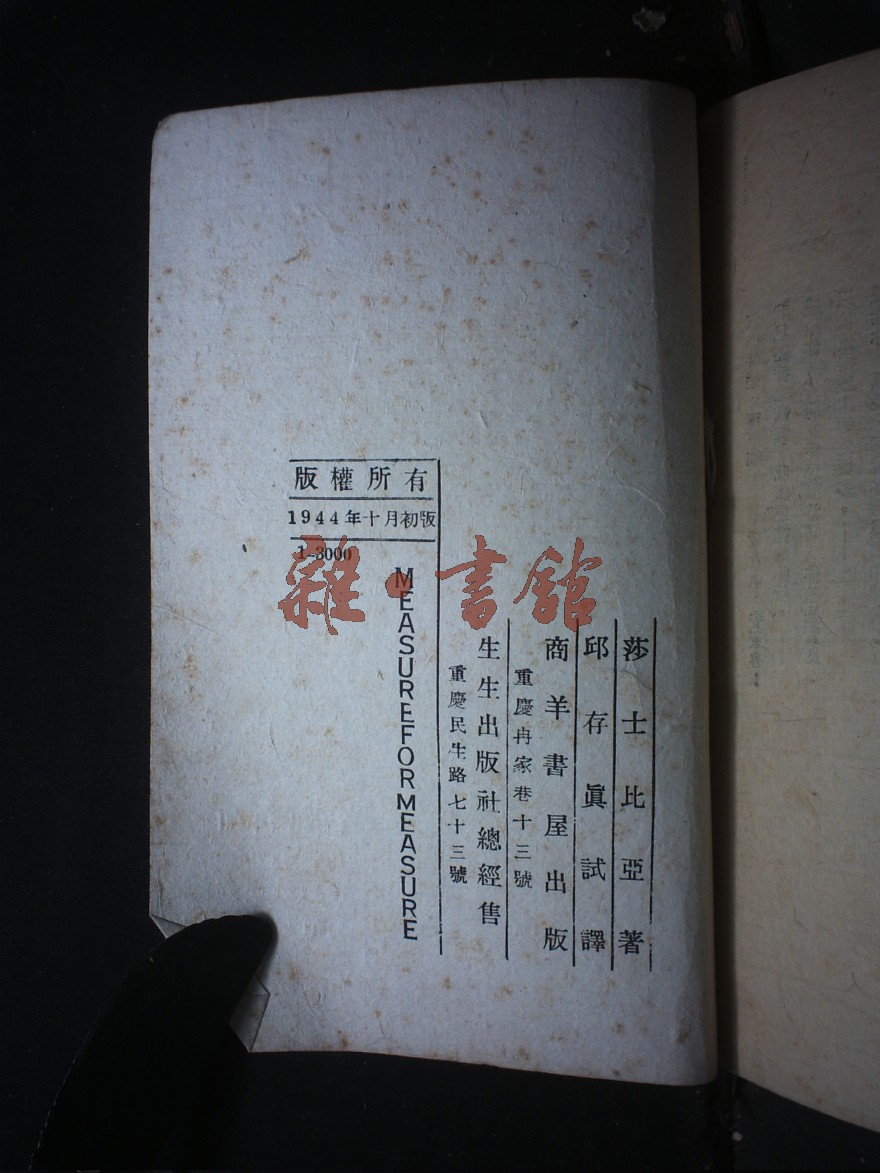 莎士比亞著
邱存眞試譯
商羊書屋出版
重慶冉家巷十三號
生生出版社總經售
重慶民生路七十三號
MEASURE FOR MEASURE
版權所有
1944年十月初版
1-3000
雜·書館